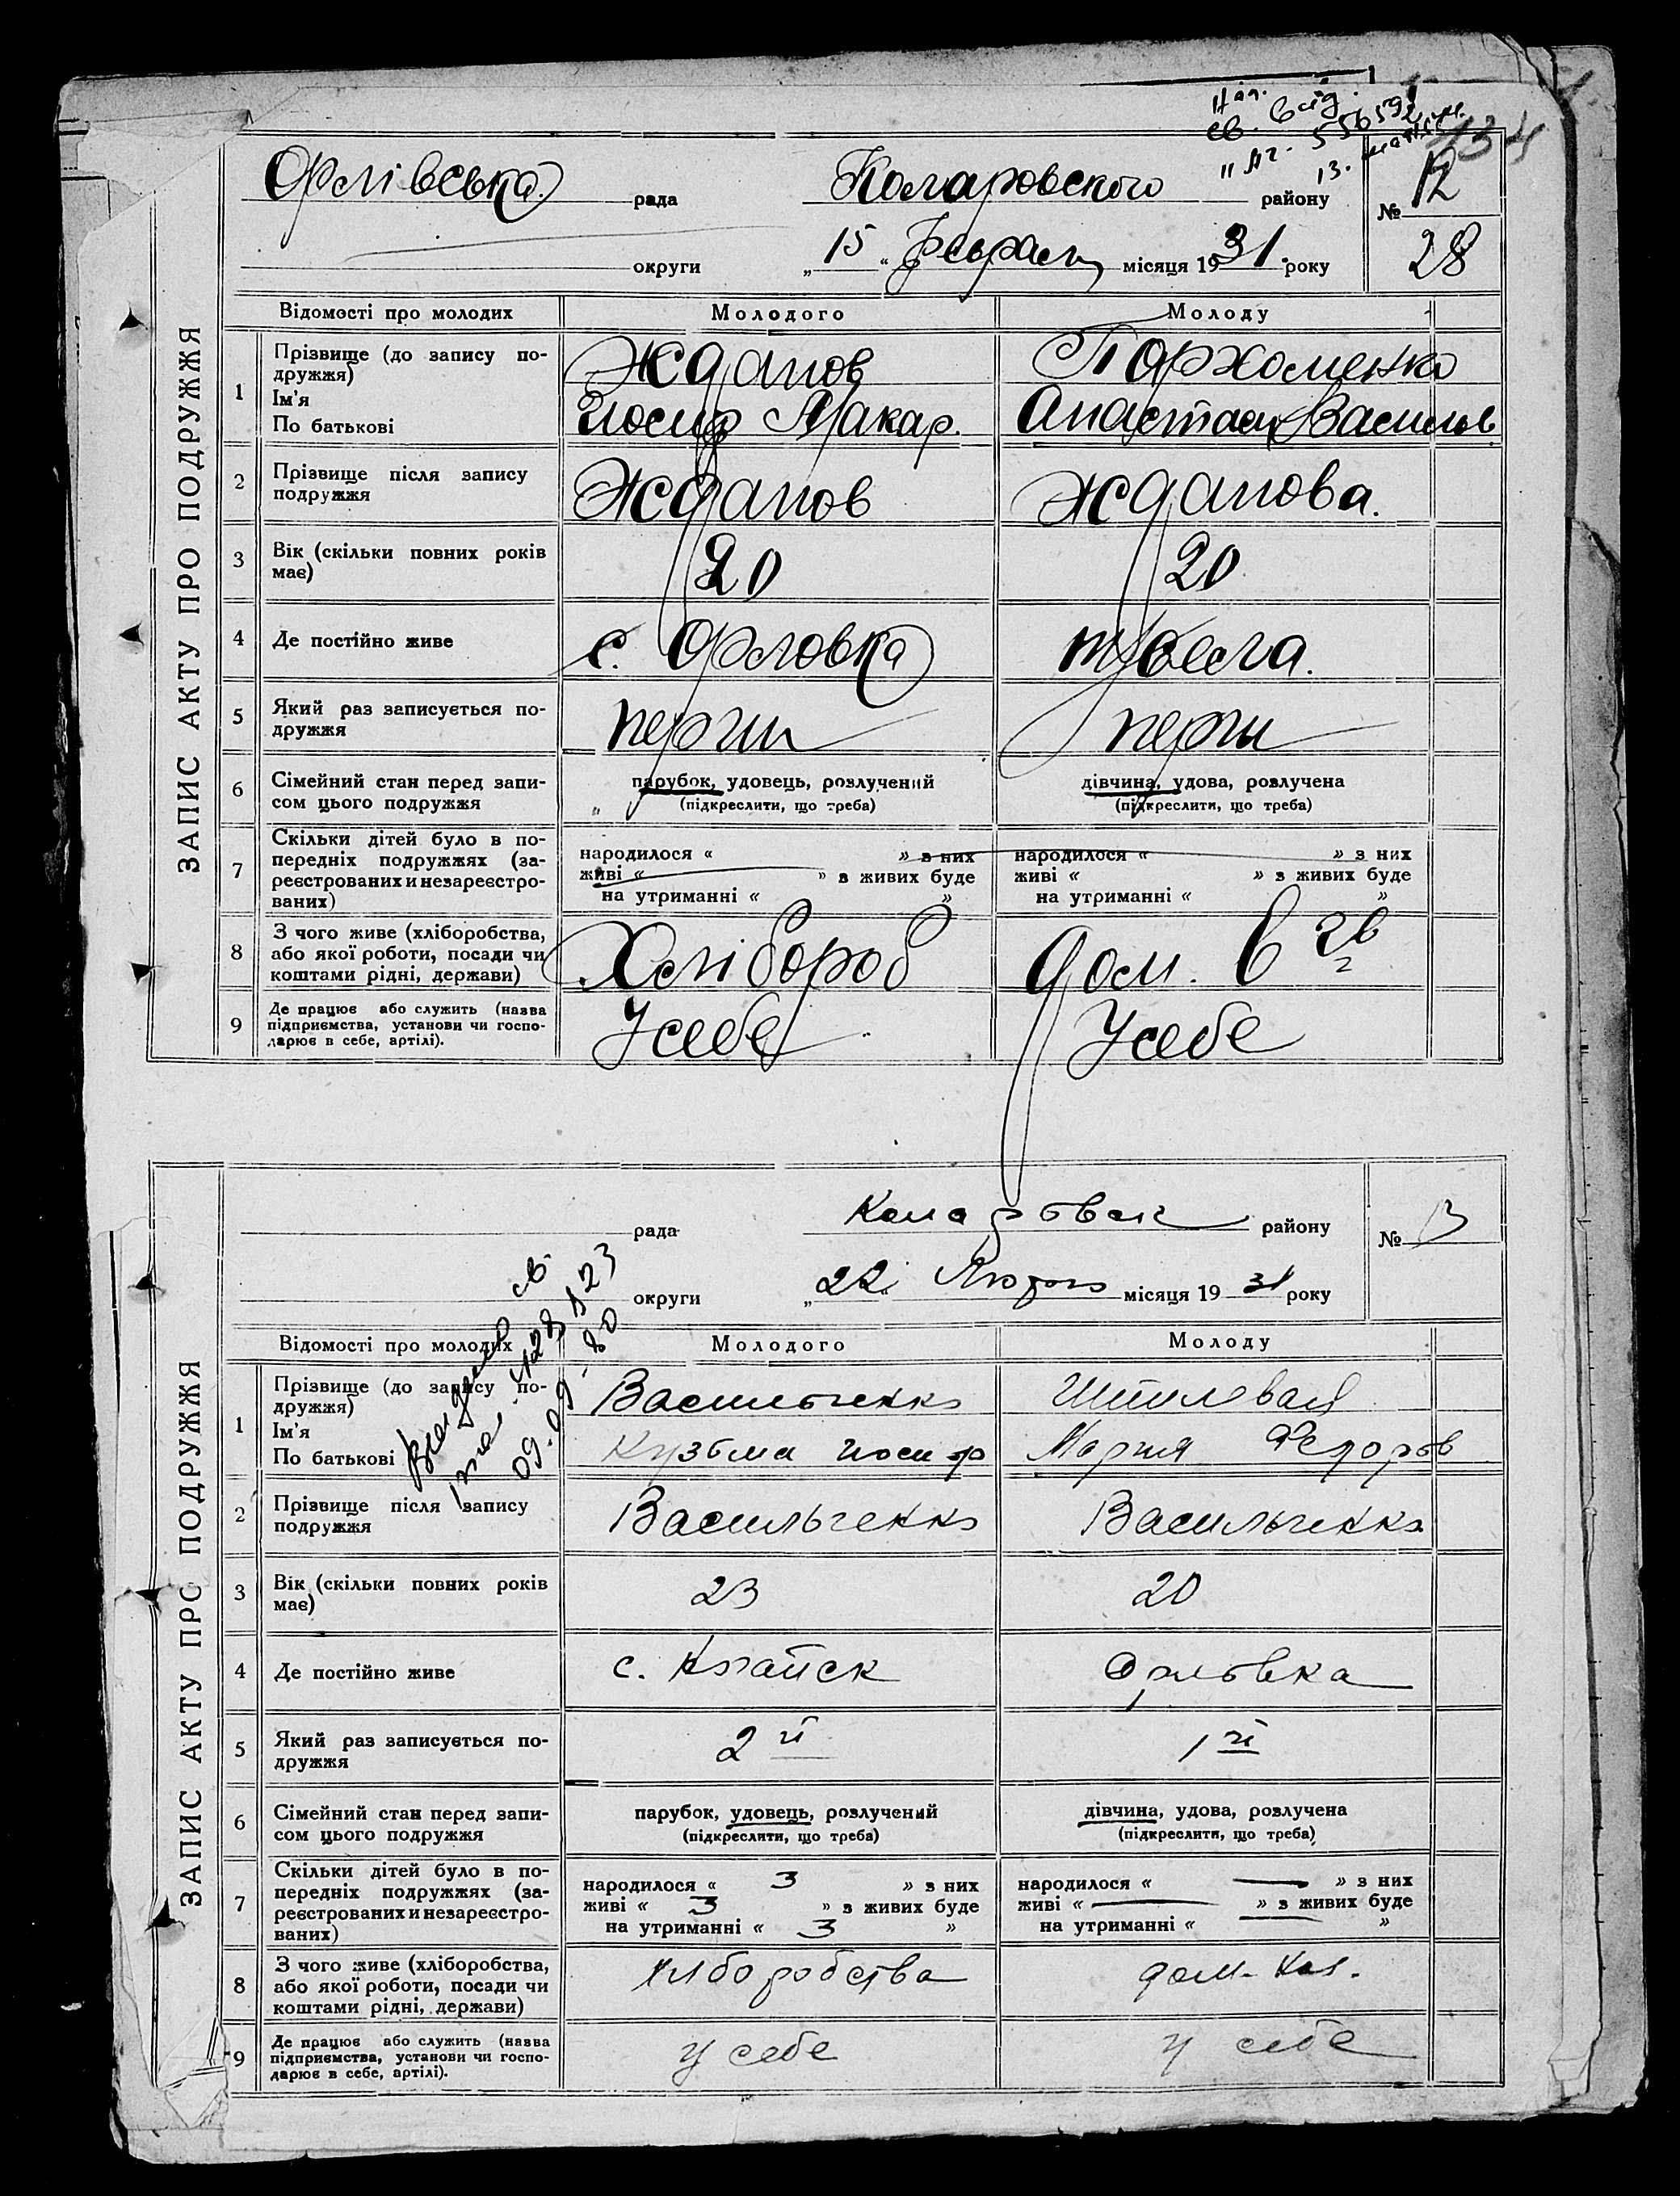 134
Орлівська рада Коларовского району № 12
округи „15“ Февраля місяця 1931. року 28
ЗАПИС АКТУ ПРО ПОДРУЖЖЯ
Відомості про молодих Молодого Молоду
1 Прізвище (до запису подружжя) Жданов Пархоменко
Ім'я
По батькові Иосиф Макар. Анастаси Васильев
2 Прізвище після запису подружжя Жданов Жданова.
3 Вік (скільки повних років має) 20 20
4 Де постійно живе с. Орловка
5 Який раз записується подружжя перши перши
6 Сімейний стан перед записом цього подружжя парубок, удовець, розлучений дівчина, удова, розлучена
(підкреслити, що треба) (підкреслити, що треба)
7 Скільки дітей було в попередніх подружжях (зареєстрованих и незареєстрованих) народилося « » з них народилося « » з них
живі « » з живих буде живі « » з живих буде
на утриманні « » на утриманні « »
8 З чого живе (хліборобства, або якої роботи, посади чи коштами рідні, держави) Хлібороб дом.
9 Де працює або служить (назва підприємства, установи чи господарює в себе, артілі). Усебе Усебе
рада Коларовск району № 13
округи „22“ Лютого місяця 1931 року
ЗАПИС АКТУ ПРО ПОДРУЖЖЯ
Відомості про молодих Молодого Молоду
1 Прізвище (до запису подружжя) Васильченко Шпилевая
Ім'я
По батькові Кузьма Иосиф Мария Федоров
2 Прізвище після запису подружжя Васильченко Васильченко
3 Вік (скільки повних років має) 23 20
4 Де постійно живе с. Орловка
5 Який раз записується подружжя 2й 1й
6 Сімейний стан перед записом цього подружжя парубок, удовець, розлучений дівчина, удова, розлучена
(підкреслити, що треба) (підкреслити, що треба)
7 Скільки дітей було в попередніх подружжях (зареєстрованих и незареєстрованих) народилося « 3 » з них народилося « » з них
живі « 3 » з живих буде живі « » з живих буде
на утриманні « 3 » на утриманні « »
8 З чого живе (хліборобства, або якої роботи, посади чи коштами рідні, держави) хлборобства дом.
9 Де працює або служить (назва підприємства, установи чи господарює в себе, артілі). у себе у себе